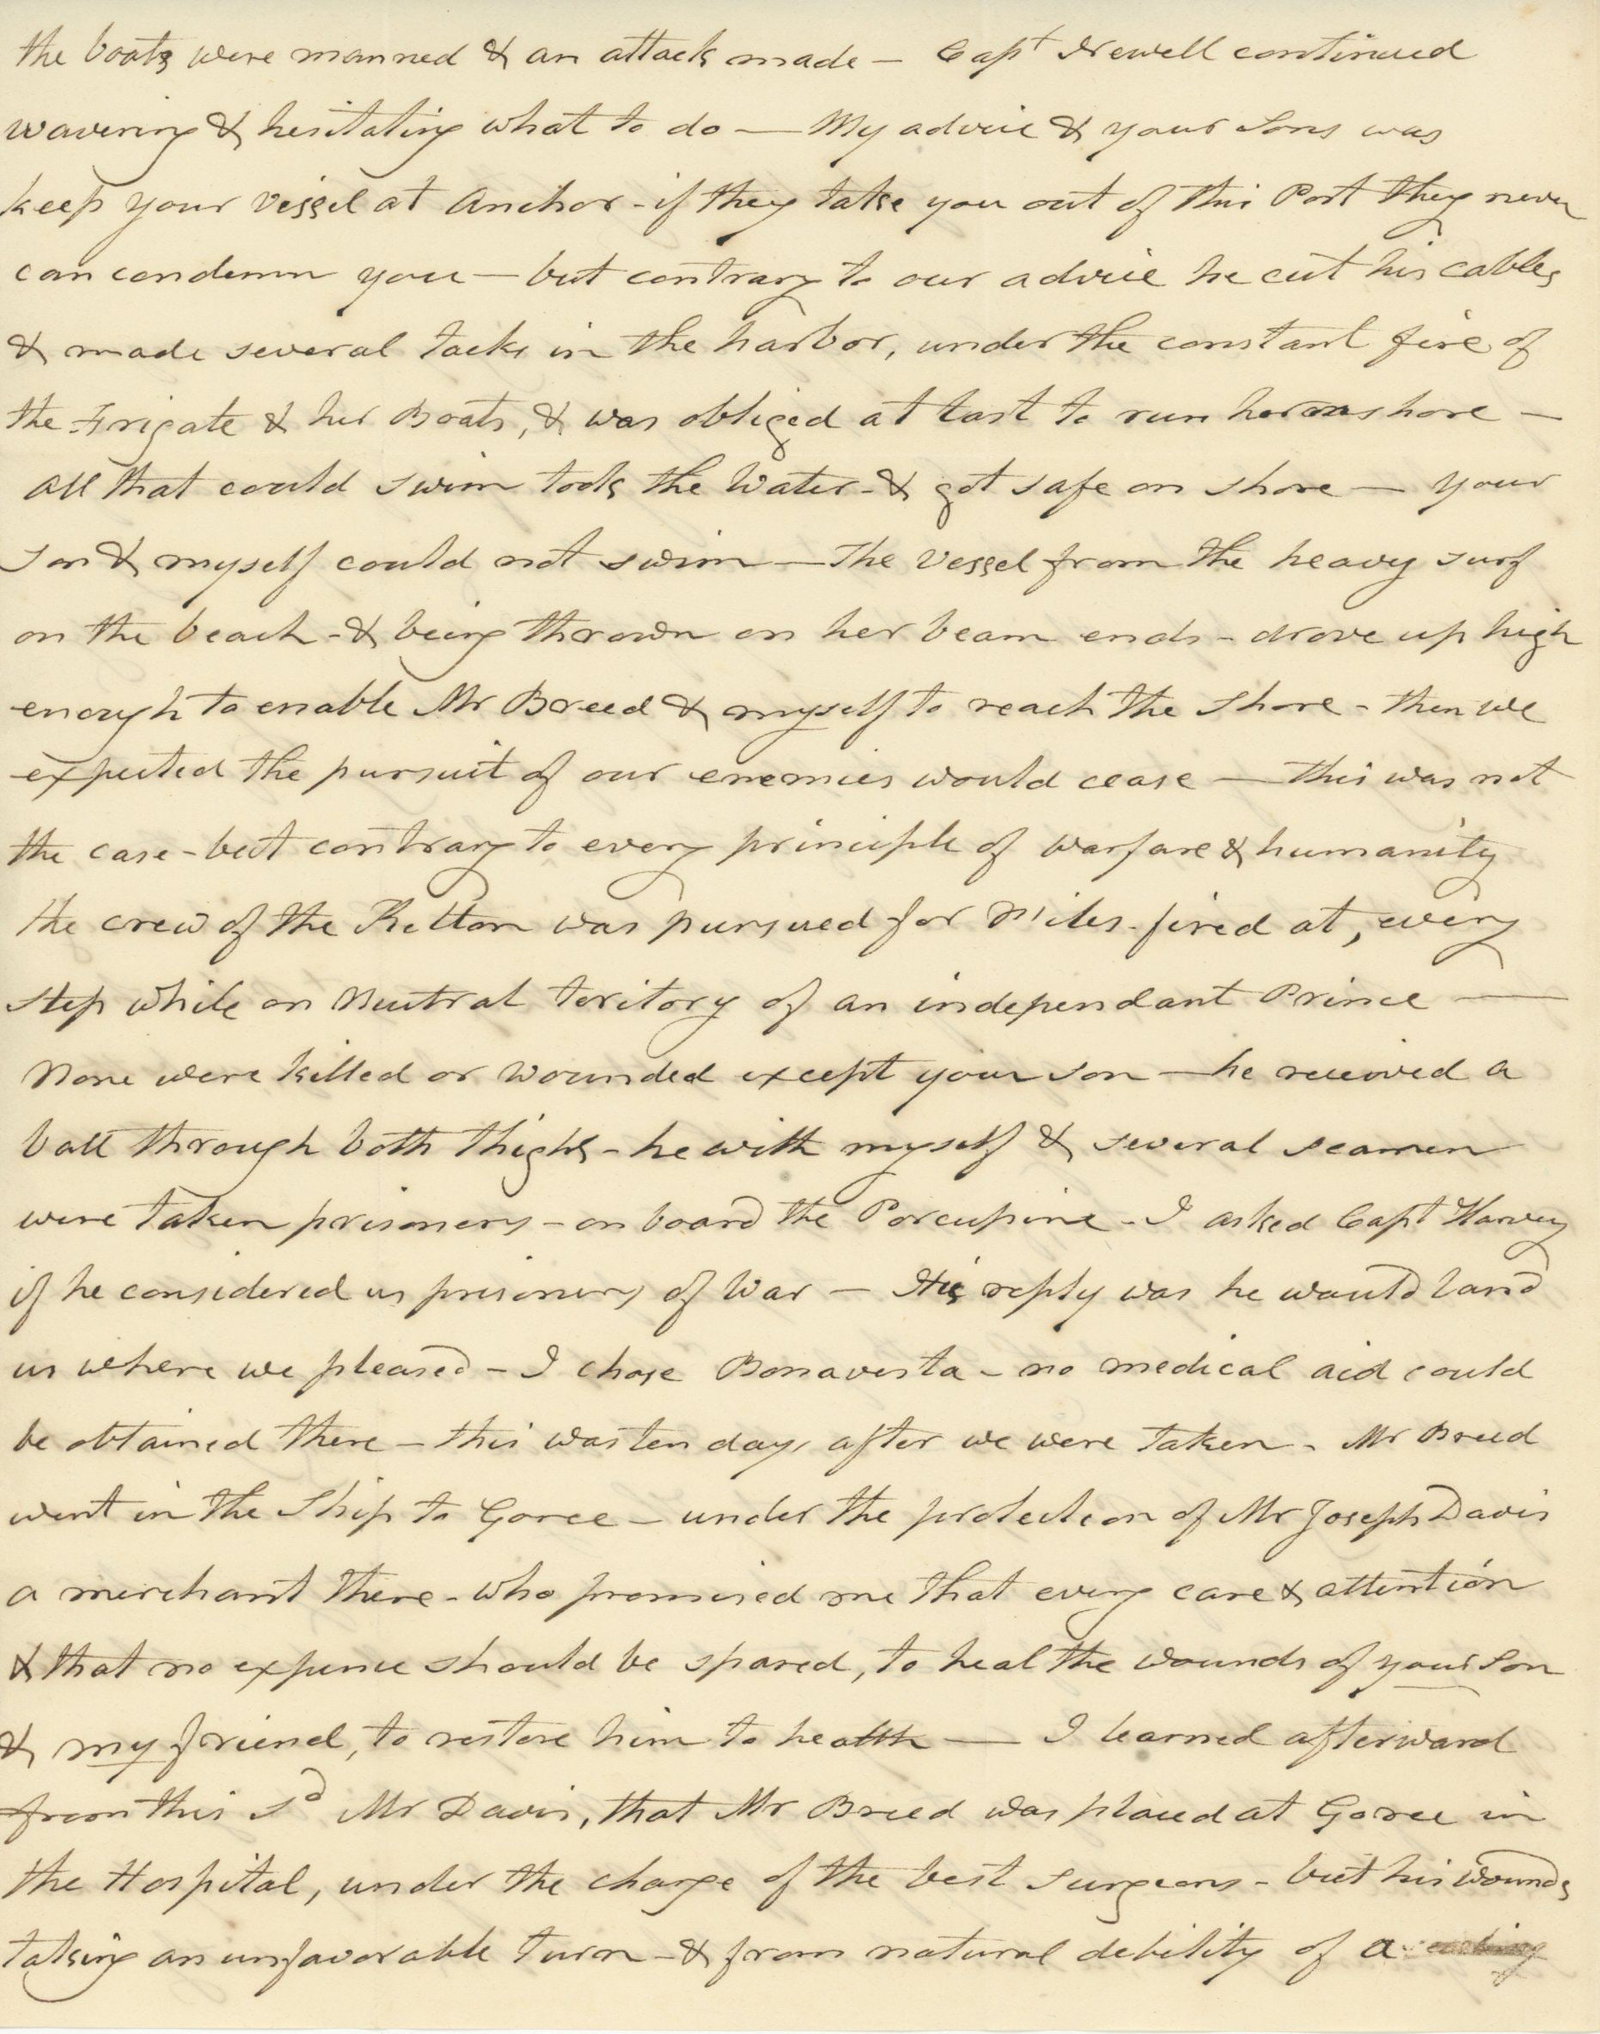 the boats were manned & an attack made — Capt Newell continued
wavering & hesitating what to do — My advice & your Sons was
keep your Vessel at Anchor - if they take you out of this Port they never
can condemn you — but contrary to our advice he cut his cables
& made several tacks in the harbor, under the constant fire of
the Frigate & her Boats, & was obliged at last to run her on shore —
All that could swim took the Water - & got safe on shore — your
Son & myself could not swim — The Vessel from the heavy surf
on the beach - & being thrown on her beam ends - drove up high
enough to enable Mr Breed & myself to reach the Shore - then we
expected the pursuit of our enemies would cease — this was not
the case - but contrary to every principle of warfare & humanity
the crew of the was pursued for Miles - fired at, every
step while on Neutral teritory of an independant Prince —
None were killed or wounded except your son — he received a
ball through both thighs - he with myself & several seamen
were taken prisoners - on board the Porcupine - I asked Capt Harvey
if he considered us prisoners of War — His reply was he would land
us where we pleased - I chose Bonavista - no medical aid could
be obtained there — this was ten days after we were taken - Mr Breed
went in the Ship to Goree — under the protection of Mr Joseph Davis
a merchant there - who promised me that every care & attention
& that no expence should be spared, to heal the wounds of your Son
& my friend, to restore him to health — I learned afterward
from this Sd Mr Davis, that Mr Breed was placed at Goree in
the Hospital, under the charge of the best Surgeons - but his wounds
taking an unfavorable turn - & from natural debility of a